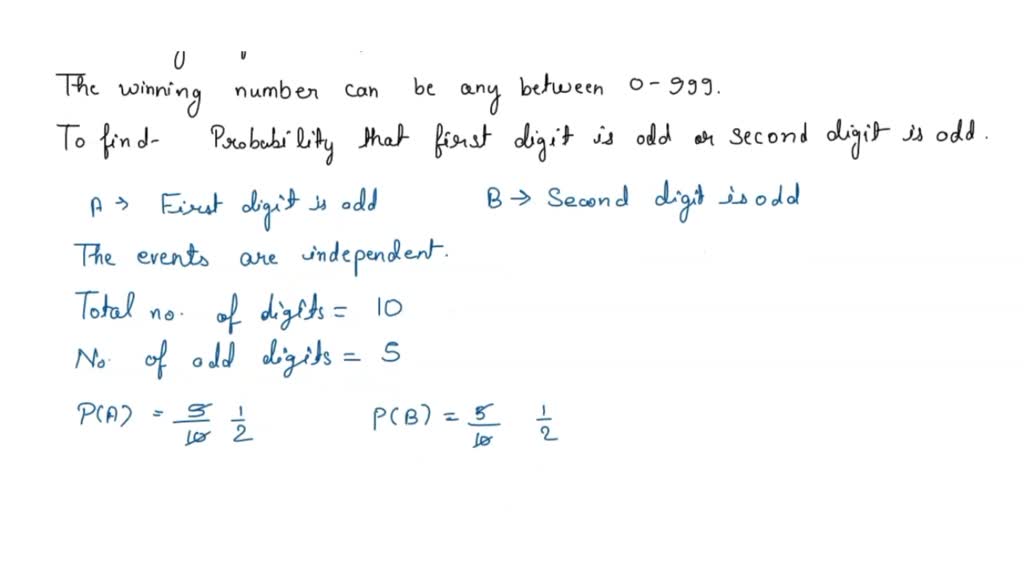 The winning number can be any between 0-999.
To find- Probability that first digit is odd or second digit is odd.
A → First digit is odd B → Second digit is odd
The events are independent.
Total no. of digits = 10
No. of odd digits = 5
P(A) = 5/10 1/2 P(B) = 5/10 1/2